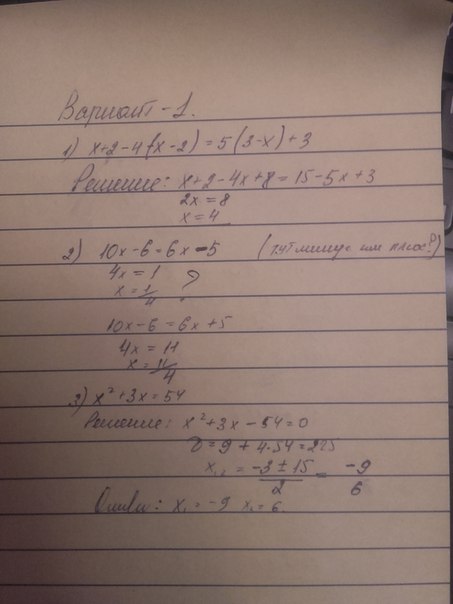 Вариант - 1.
1) x+2-4(x-2)=5(3-x)+3
Решение: x+2-4x+8=15-5x+3
2x=8
x=4
2) 10x-6=6x-5 (тут минус или плюс?)
4x=1
x=1/4 ?
10x-6=6x+5
4x=11
x=11/4
3) x²+3x=54
Решение: x²+3x-54=0
D=9+4·54=225
x₁,₂ = (-3±15)/2 = -9
6
Ответ: x₁=-9 x₂=6